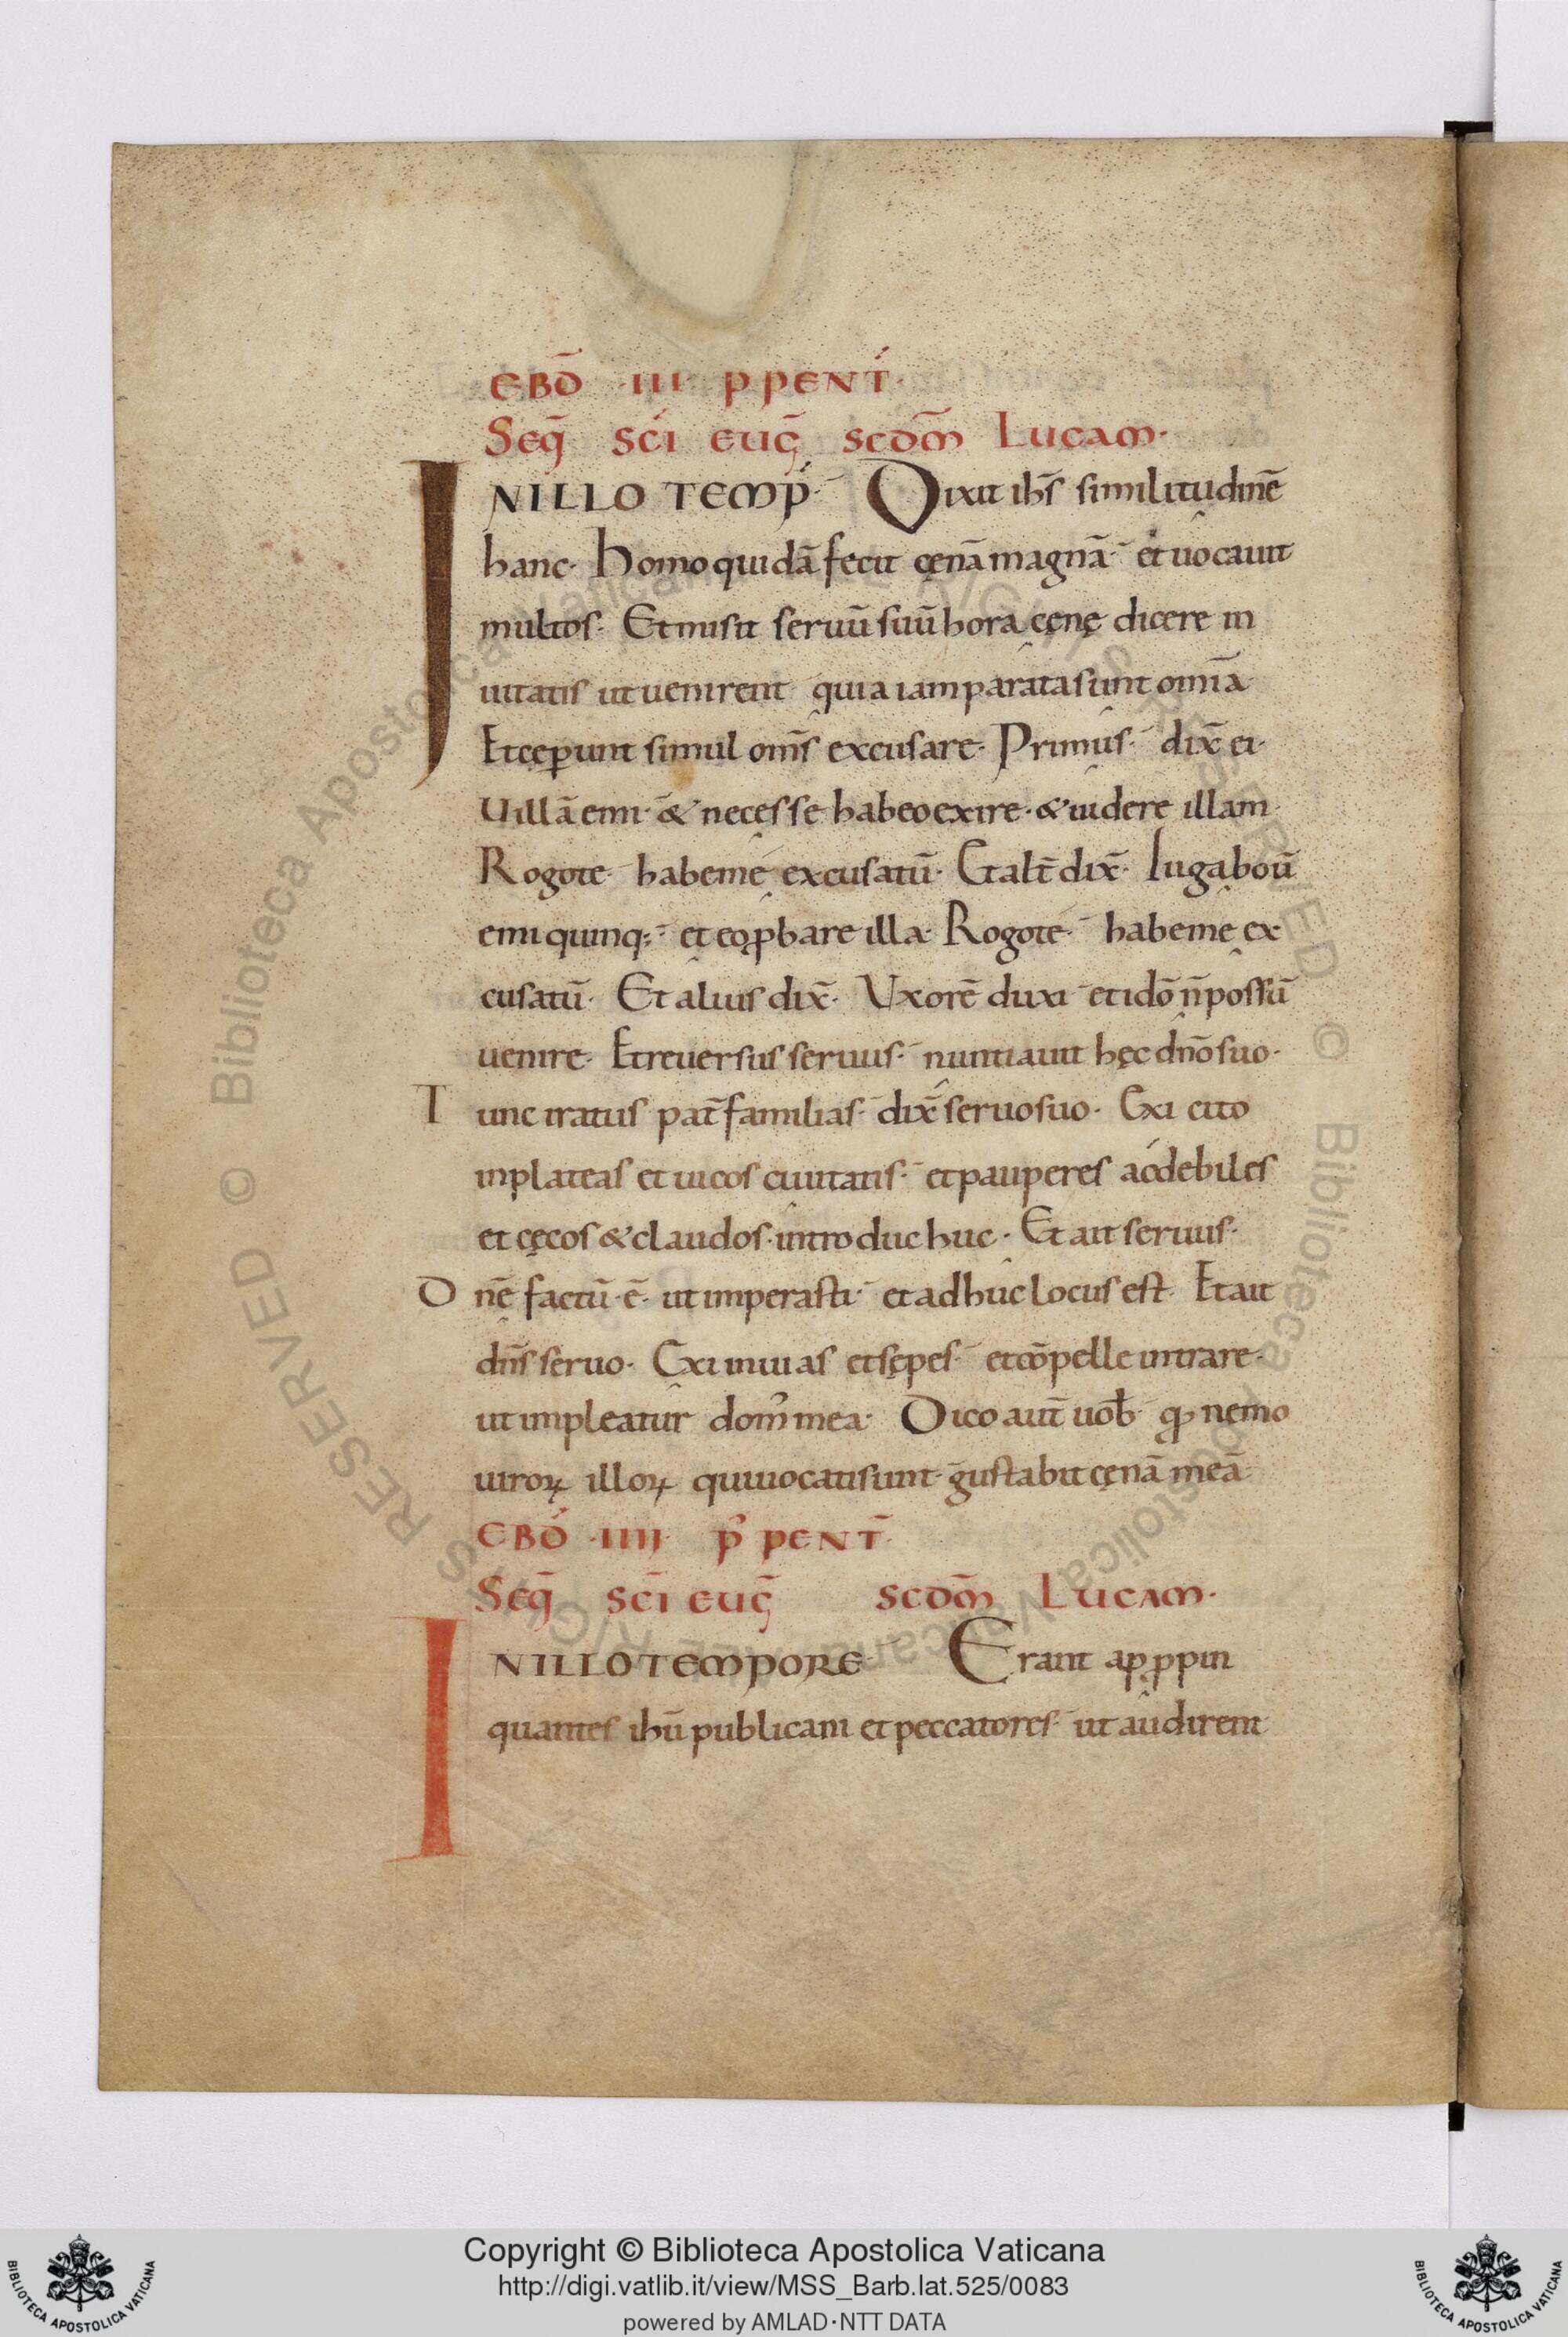 EBD̄ ·III· P PENT̄·
Seq̄ SC̄I EUG̅ SCDM̄ LUCAM·
INILLO TEMP̄· Dixit ih̄s similitudinē
hanc· Homo quidā fecit cęnā magnā· et uocauit
multos· Et misit seruū suū hora cęnę dicere in
uitatis ut uenirent quia iam parata sunt om̄ia
Et cęp̄unt simul om̄s excusare· Primus· dix̄ ei·
Uillā emi· & necęsse habeo exire· & uidere illam·
Rogo te· habe me excusatū· Et alt̄ dix̄· Iuga boū
emi quinq;· et eo ꝓbare illa· Rogo te· habe me ex
cusatū· Et alius dix̄· Uxorē duxi et idō n̄ possū
uenire· Et reuersus seruus· nuntiauit hęc dn̄o suo·
Tunc iratus pat̄familias· dix̄ seruo suo· Exi cito
in plateas et uicos ciuitatis· et pauperes ac debiles
et cęcos & claudos· introduc huc· Et ait seruus·
Dn̄ē factū ē· ut imperasti· et adhuc locus est· Et ait
dn̄s seruo· Exi in uias et sępes· et cōpelle intrare·
ut impleatur dom᾽ mea· Dico aut̄ uob̄ qđ nemo
uiroꝝ illoꝝ qui uocati sunt· gustabit cęnā meā·
EBD̄ ·IIII· P᾽ PENT̄·
Seq̄ SC̄I EUG̅ SCDM̄ LUCAM·
INILLO TEMPORE· Erant apꝓpin
quantes ih̄ū publicani et peccatores· ut audirent
Copyright © Biblioteca Apostolica Vaticana
http://digi.vatlib.it/view/MSS_Barb.lat.525/0083
powered by AMLAD·NTT DATA
BIBLIOTECA APOSTOLICA VATICANA
BIBLIOTECA APOSTOLICA VATICANA